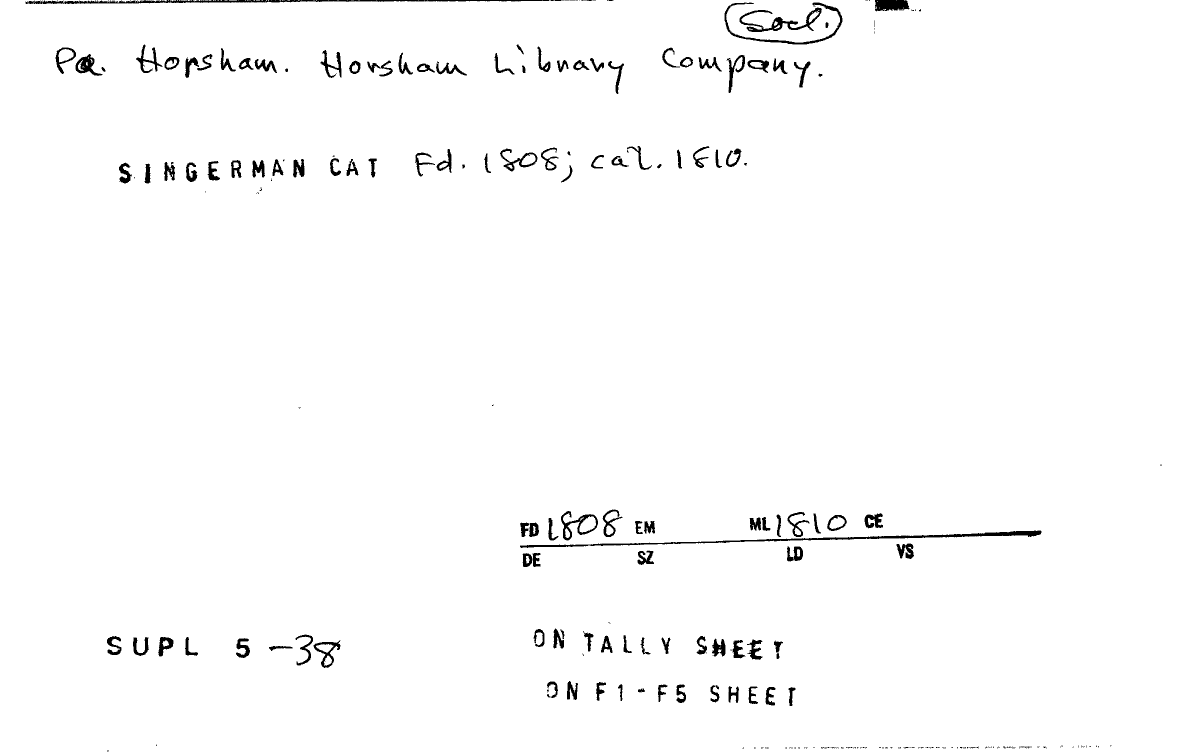 Socl.
Pa. Horsham. Horsham Library Company.
SINGERMAN CAT Fd. 1808; cat. 1810.
FD 1808 EM ML 1810 CE
DE SZ LD VS
SUPL 5 -38
ON TALLY SHEET
ON F1-F5 SHEET